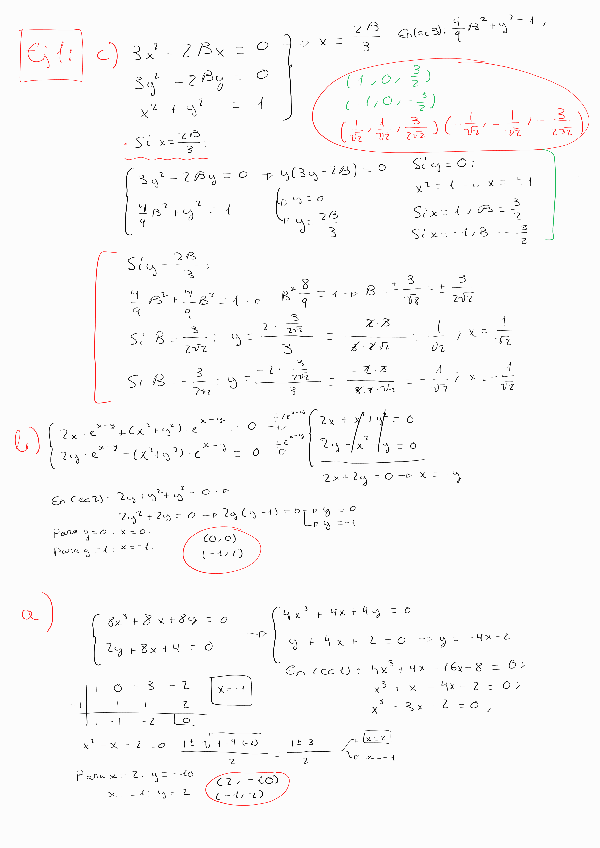 Ej 1:
c) 3x² - 2βx = 0
3y² - 2βy = 0
x² + y² = 1
→ x = 2β/3
En (ec 3): 4/9 β² + y² = 1;
(1, 0, 3/2)
(-1, 0, -3/2)
(1/√2, 1/√2, 3/2√2) (-1/√2, -1/√2, -3/2√2)
Si x = 2β/3
3y² - 2βy = 0 → y(3y - 2β) = 0
4/9 β² + y² = 1
→ y = 0
→ y = 2β/3
Si y = 0:
x² = 1 → x = ±1
Si x = 1, β = 3/2
Si x = -1, β = -3/2
Si y = 2β/3:
4/9 β² + 4/9 β² = 1 → β² 8/9 = 1 → β = ± 3/√8 = ± 3/2√2
Si β = 3/2√2 : y = 2 · 3/2√2 / 3 = 2·3 / 3·2√2 = 1/√2 ; x = 1/√2
Si β = -3/2√2 : y = -2 · 3/2√2 / 3 = -2·3 / 3·2√2 = -1/√2 ; x = -1/√2
b) 2x · e^(x-y) + (x² + y²) · e^(x-y) = 0
2y · e^(x-y) - (x² + y²) · e^(x-y) = 0
2x + x² + y² = 0
2y - x² - y² = 0
2x + 2y = 0 → x = -y
En (ec 1): -2y + y² + y² = 0 →
2y² - 2y = 0 → 2y (y - 1) = 0 → y = 0
→ y = 1
Para y = 0 : x = 0.
Para y = 1 : x = -1.
(0, 0)
(-1, 1)
a) 8x³ + 8x + 8y = 0
2y + 8x + 4 = 0
→ 4x³ + 4x + 4y = 0
y + 4x + 2 = 0 → y = -4x - 2
En (ec 1): 4x³ + 4x - 16x - 8 = 0;
x³ + x - 4x - 2 = 0;
x³ - 3x - 2 = 0;
1 0 -3 -2
-1 -1 1 2
1 -1 -2 0
x = -1
x² - x - 2 = 0 1 ± √(1 + 4·2) / 2 = 1 ± 3 / 2
→ x = 2
→ x = -1
Para x = 2 : y = -10
x = -1 : y = 2
(2, -10)
(-1, 2)